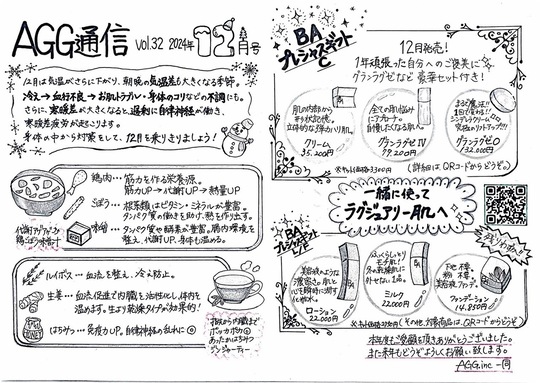 AGG通信 Vol.32 2024年 12月号
12月は気温がさらに下がり、朝晩の気温差も大きくなる季節。
冷え→血行不良→お肌トラブル・身体のコリなどの不調にも。
さらに、寒暖差が大きくなると、過剰に自律神経が働き、
寒暖差疲労が起こります。
身体の中から対策をして、12月も乗りきりましょう!
鶏肉…筋力を作る栄養源。
筋力UP→代謝UP→熱量UP
ごぼう…
タンパク質の働きを助け、熱を作ります。
味噌…タンパク質や酵素が豊富。腸内環境を
整え、代謝UP、身体も温める。
代謝アップ
鶏ごぼう味噌汁
ルイボス…血流を整え、冷え防止。
生姜…血流促進で内臓も活性化し、体内を
温めます。生より乾燥タイプが効果的!
はちみつ…免疫力UP。自律神経の乱れに
HONEY
内臓まで
ポッカポカ
あったかはちみつ
ジンジャーティー
BA
プレシャスギフト
C
12月発売!
1年頑張った自分へのご褒美に
グランラグゼなど豪華セット付き!
肌の内部から
立体的な弾力ハリ肌。
クリーム
35,200円
全ての肌悩み
にアプローチ。
自慢したくなる肌へ。
グランラグゼIV
79,200円
まるで魔法!!
1日で変わる!!
究極のリフトアップ!!!
グランラグゼO
132,000円
(詳細は、QRコードからどうぞ。)
一緒に使って
ラグジュアリー肌へ
BA
プレシャスギフト
美容液のような
濃密さが肌と
心を瞬時に潤す
化粧水。
ローション
22,000円
ふっくらしっとり
モチ肌!
ミルク
22,000円
下地不要。
粉不要。
美容液ファンデ。
ファンデーション
14,850円
(その他、対象商品はQRコードからどうぞ)
本年度もご愛顧を頂きありがとうございました。
また来年もどうぞよろしくお願い致します。
AGG.inc 一同